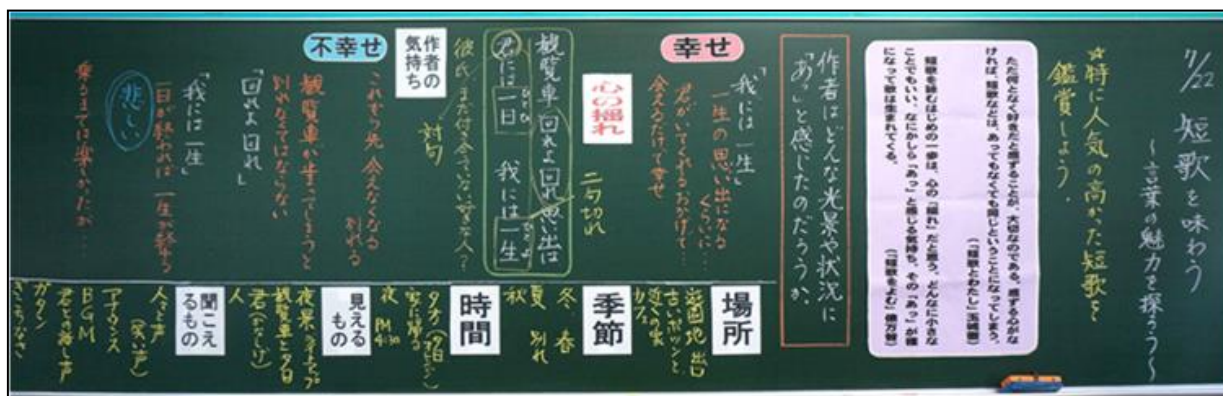 7/22 短歌を味わう
～言葉の魅力を探ろう～
☆特に人気の高かった短歌を
鑑賞しよう.
ただ何となく好きだと感ずることが、大切なのである。感ずる心がな
ければ、短歌などは、あってもなくても同じということになってしまう。
(「短歌とわたし」玉城徹)
短歌を詠むはじめの一歩は、心の「揺れ」だと思う。どんなに小さな
ことでもいい、なにかしら「あっ」と感じる気持ち。その「あっ」が種
になって歌は生まれてくる。
(「短歌をよむ」俵万智)
作者はどんな光景や状況に
「あっ」と感じたのだろうか。
幸せ
「我には一生」
一生の思い出になる
くらいに…
君がいてくれるおかげで…
会えるだけで幸せ
心の揺れ
二句切れ
観覧車 回れよ回れ 思い出は
君には一日 我には一生
ひとひ
ひとよ
対句
彼氏、まだ付き合っていない好きな人?
作者の
気持ち
不幸せ
これから先 会えなくなる
別れる
観覧車が止まってしまうと
別れなくてはならない
「回れよ回れ」
「我には一生」
一日が終われば 一生が終る
悲しい
乗るまでは楽しかったが…
場所
遊園地
季節
冬 春
夏 別れ
秋
時間
夕方
夜 PM
見える
もの
夜景
観覧車と夕日
人
聞こえ
るもの
人々の声
(笑い声)
アナウンス
BGM
君との話し声
ガタン